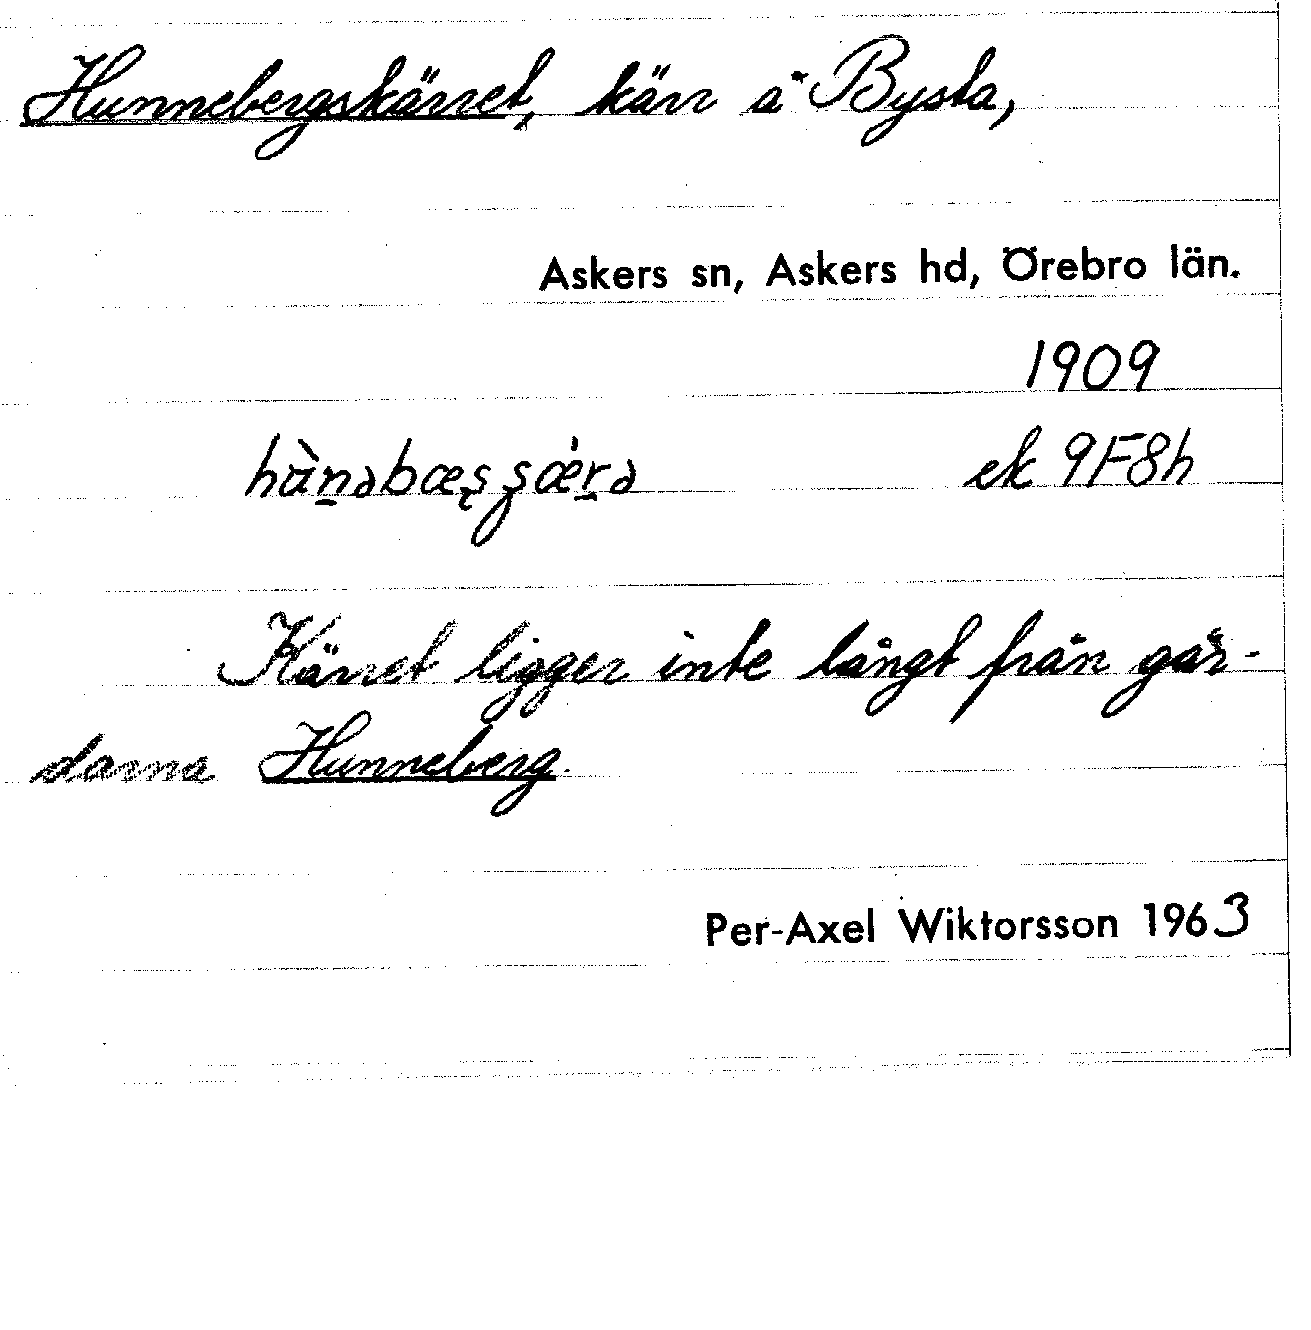 Hunnebergskärret, kärr å Bysta,
Askers sn, Askers hd, Örebro län.
1909
ek 9F8h
Kärret ligger inte långt från går-
darna Hunneberg.
Per-Axel Wiktorsson 1963